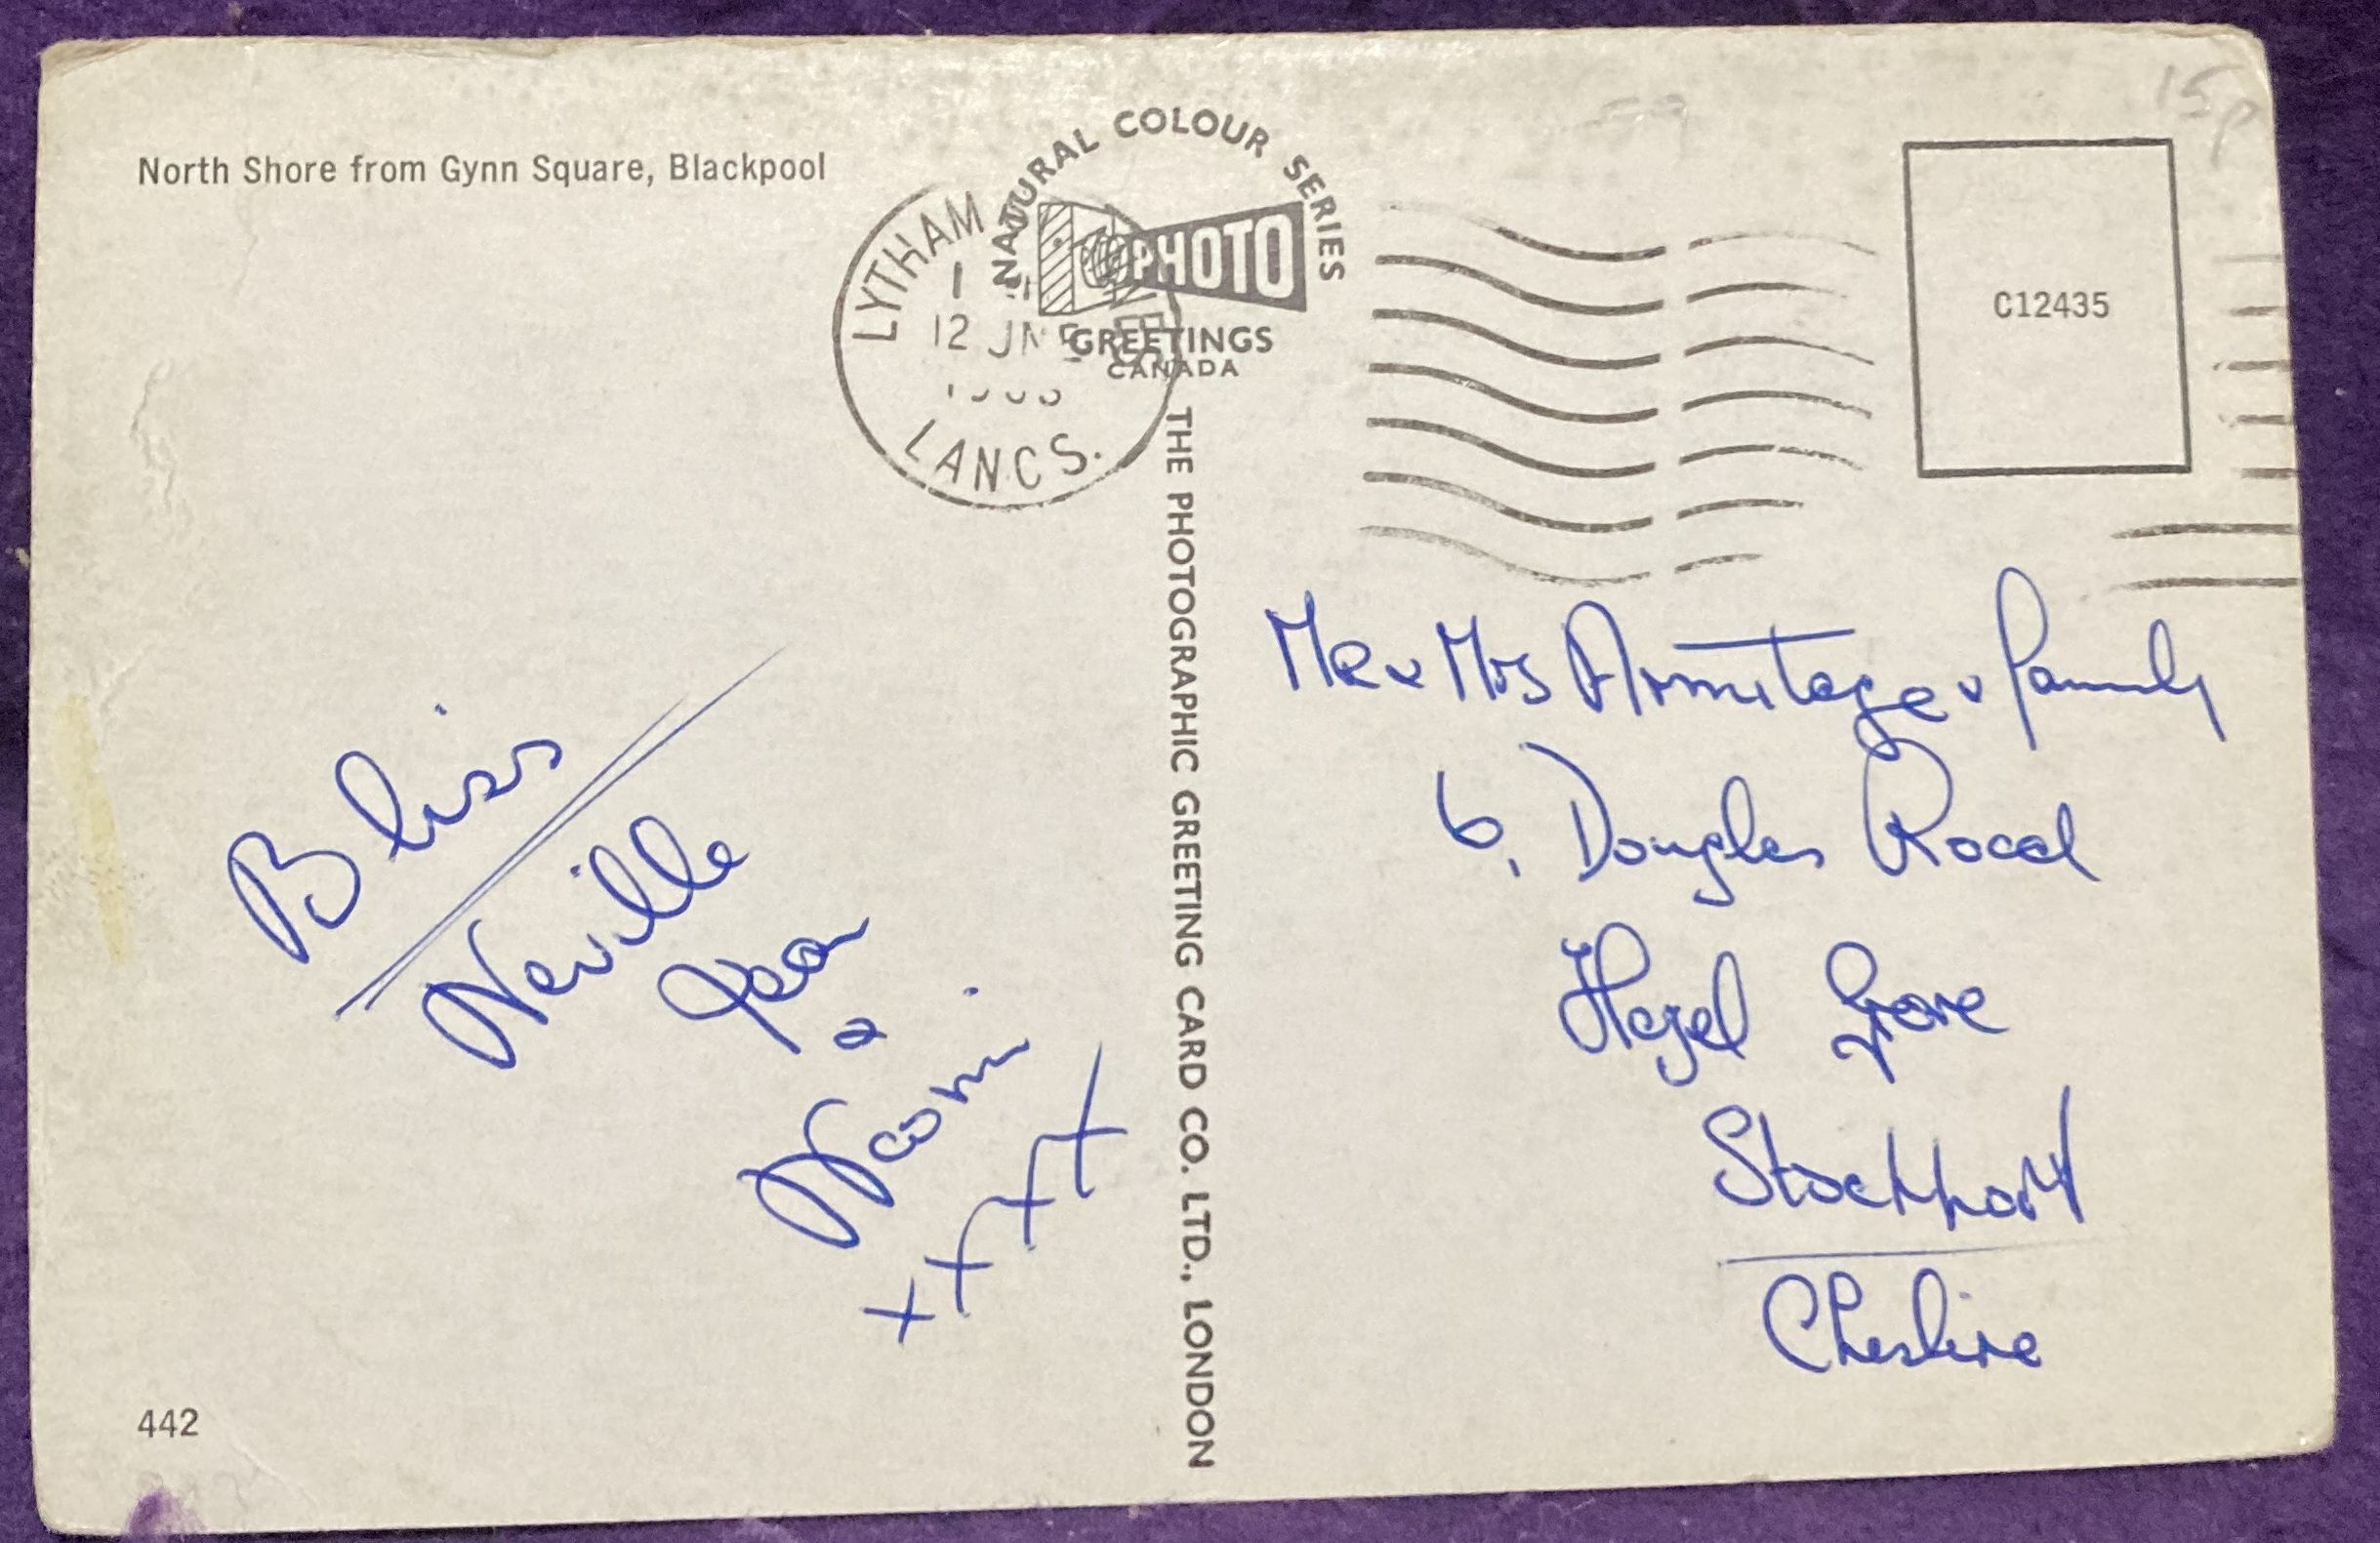 North Shore from Gynn Square, Blackpool
NATURAL COLOUR SERIES
PHOTO
GREETINGS
CANADA
LYTHAM
12 JN
LANCS.
15p
C12435
THE PHOTOGRAPHIC GREETING CARD CO. LTD., LONDON
Bliss
Neville
Jean
&
Naomi
x x x x
Mr & Mrs Armitage & Family
6, Douglas Road
Hazel Grove
Stockport
Cheshire
442